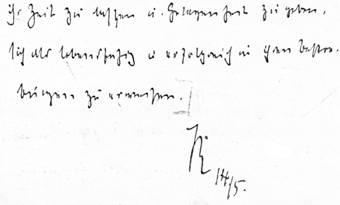 ihr Zeit zu lassen u. Gelegenheit zu geben,
sich als lebensfähig u. erfolgreich in ihren Bestre-
bungen zu erweisen.
14/5.